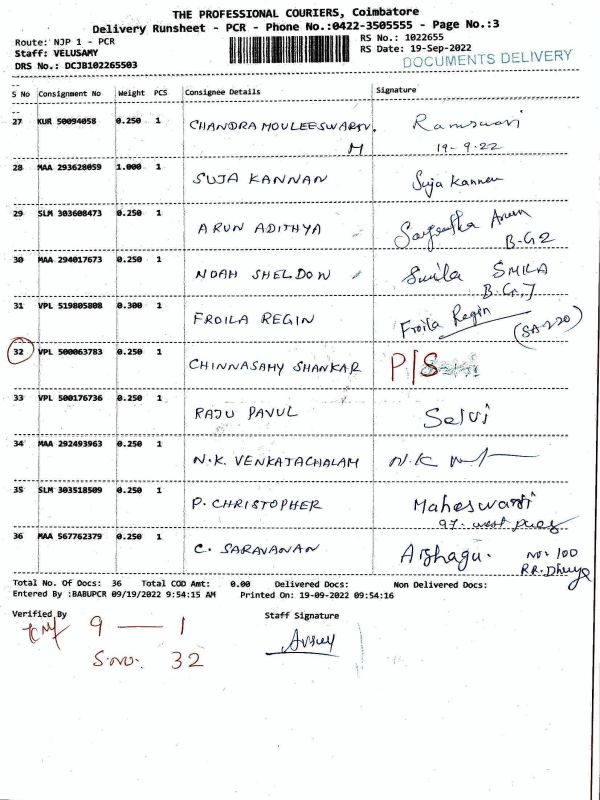 THE PROFESSIONAL COURIERS, Coimbatore
Delivery Runsheet - PCR - Phone No.:0422-3505555 - Page No.:3
Route: NJP 1 - PCR
RS No.: 1022655
Staff: VELUSAMY
RS Date: 19-Sep-2022
DRS No.: DCJB102265503
DOCUMENTS DELIVERY
S No Consignment No Weight PCS Consignee Details Signature
27 KUR 50094058 0.250 1 CHANDRAMOULEESWARN. Ramswari
M 19-9-22
28 MAA 293628059 1.000 1 SUJA KANNAN Suja Kannan
29 SLM 303608473 0.250 1 ARUN ADITHYA Arun
B-G2
30 MAA 294017673 0.250 1 NOAH SHELDON Sunila
31 VPL 519805808 0.300 1 FROILA REGIN Froila Regin
32 VPL 500063783 0.250 1 CHINNASAMY SHANKAR P/S
33 VPL 500176736 0.250 1 RAJU PAVUL Selvi
34 MAA 292493963 0.250 1 N.K. VENKATACHALAM N.K
35 SLM 303518509 0.250 1 P. CHRISTOPHER Maheswari
36 MAA 567762379 0.250 1 C. SARAVANAN No: 100
Total No. Of Docs: 36 Total COD Amt: 0.00 Delivered Docs: Non Delivered Docs:
Entered By :BABUPCR 09/19/2022 9:54:15 AM Printed On: 19-09-2022 09:54:16
Verified By Staff Signature
9 — 1
S.no. 32